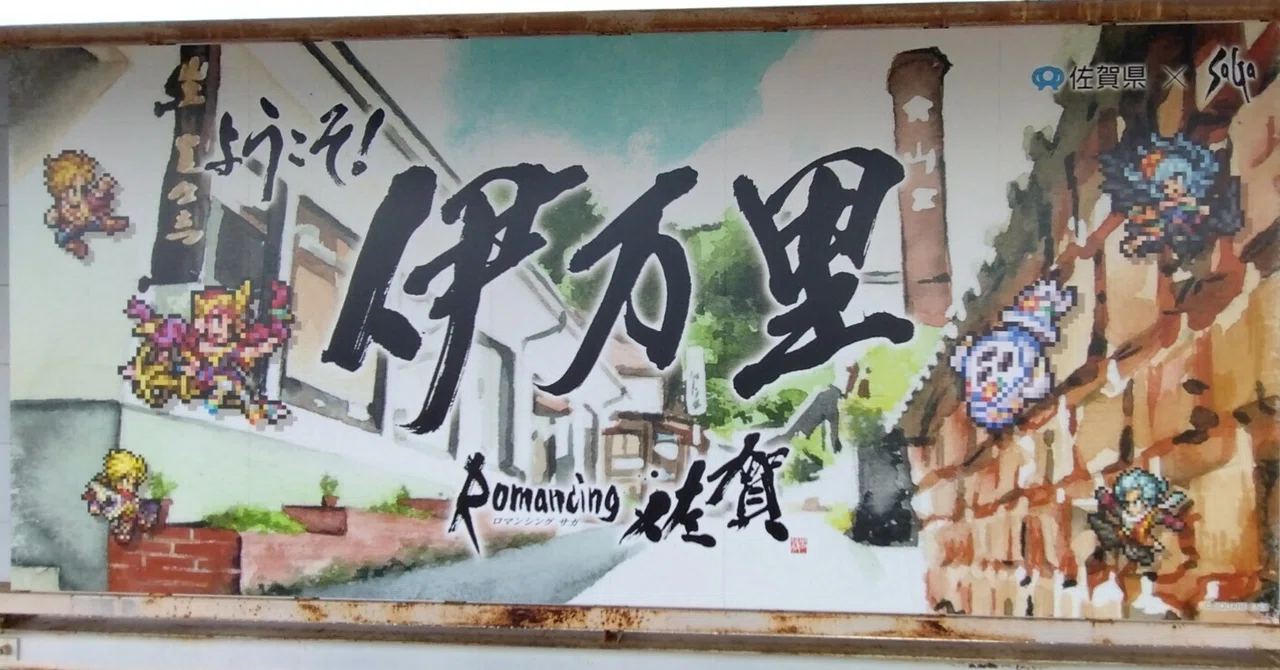 佐賀県 × SaGa
ようこそ!
伊万里
Romancing 佐賀
ロマンシング サガ